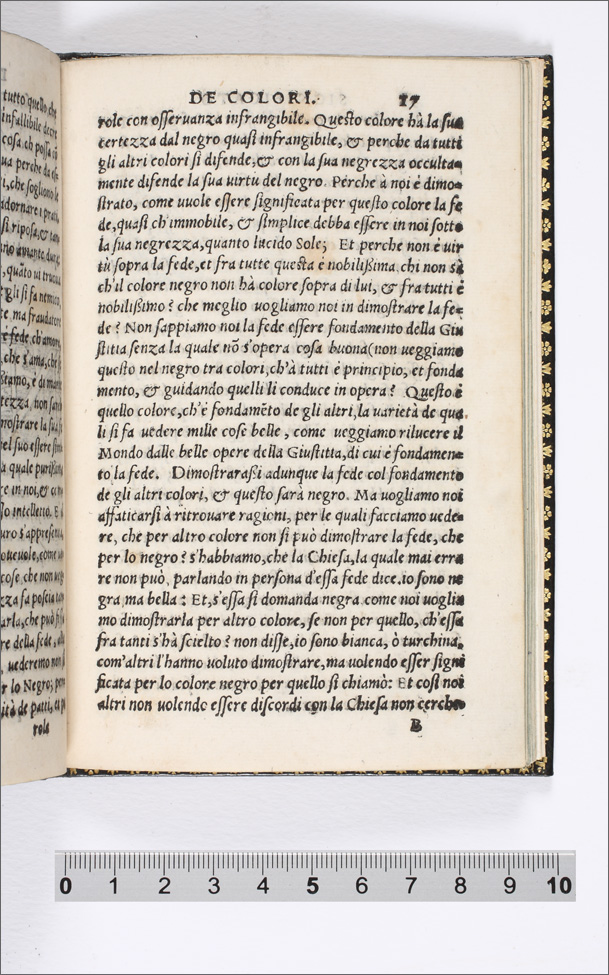 DE COLORI. 17
role con osseruanza infrangibile. Questo colore hà la sua
certezza dal negro quasi infrangibile, & perche da tutti
gli altri colori si difende, & con la sua negrezza occulta-
mente difende la sua uirtù del negro. Perche à noi è dimo-
strato, come uuole essere significata per questo colore la fe
de, quasi ch'immobile, & simplice debba essere in noi sotto
la sua negrezza, quanto lucido Sole; Et perche non è uir
tù sopra la fede, et fra tutte questa è nobilißima chi non sà
ch'il colore negro non hà colore sopra di lui, & fra tutti è
nobilißimo? che meglio uogliamo noi in dimostrare la fe-
de? Non sappiamo noi la fede essere fondamento della Giu
stitia senza la quale nõ s'opera cosa buona (non ueggiamo
questo nel negro tra colori, ch'à tutti è principio, et fonda
mento, & guidando quelli li conduce in opera? Questo è
quello colore, ch'è fondamẽto de gli altri, la varietà de qua
li si fa uedere mille cose belle, come ueggiamo rilucere il
Mondo dalle belle opere della Giustitia, di cui è fondamen-
to la fede. Dimostraraßi adunque la fede col fondamento
de gli altri colori, & questo sarà negro. Ma uogliamo noi
affaticarsi à ritrouare ragioni, per le quali facciamo uede-
re, che per altro colore non si può dimostrare la fede, che
per lo negro? s'habbiamo, che la Chiesa, la quale mai erra
re non può, parlando in persona d'essa fede dice. io sono ne
gra, ma bella: Et, s'essa si domanda negra come noi uoglia
mo dimostrarla per altro colore, se non per quello, ch'essa
fra tanti s'hà scielto? non disse, io sono bianca, ò turchina,
com'altri l'hanno uoluto dimostrare, ma uolendo esser signi
ficata per lo colore negro per quello si chiamò: Et così noi
altri non uolendo essere discordi con la Chiesa non cerche-
B
tutto quello che
infallibile
cosa
ua perche
che sogliono
adornare i prati,
si riposa, &
gli si fa nemico,
re ma fraudatore
che s'ama, che
è
non
la sua
suo essere
a quale
re in noi, &
lo intelletto. E
uro s'appresenta,
come
cose, che non
fa poscia
che può
re della fede,
uederemo non
r lo Negro;
ità de patti, et
role
0 1 2 3 4 5 6 7 8 9 10